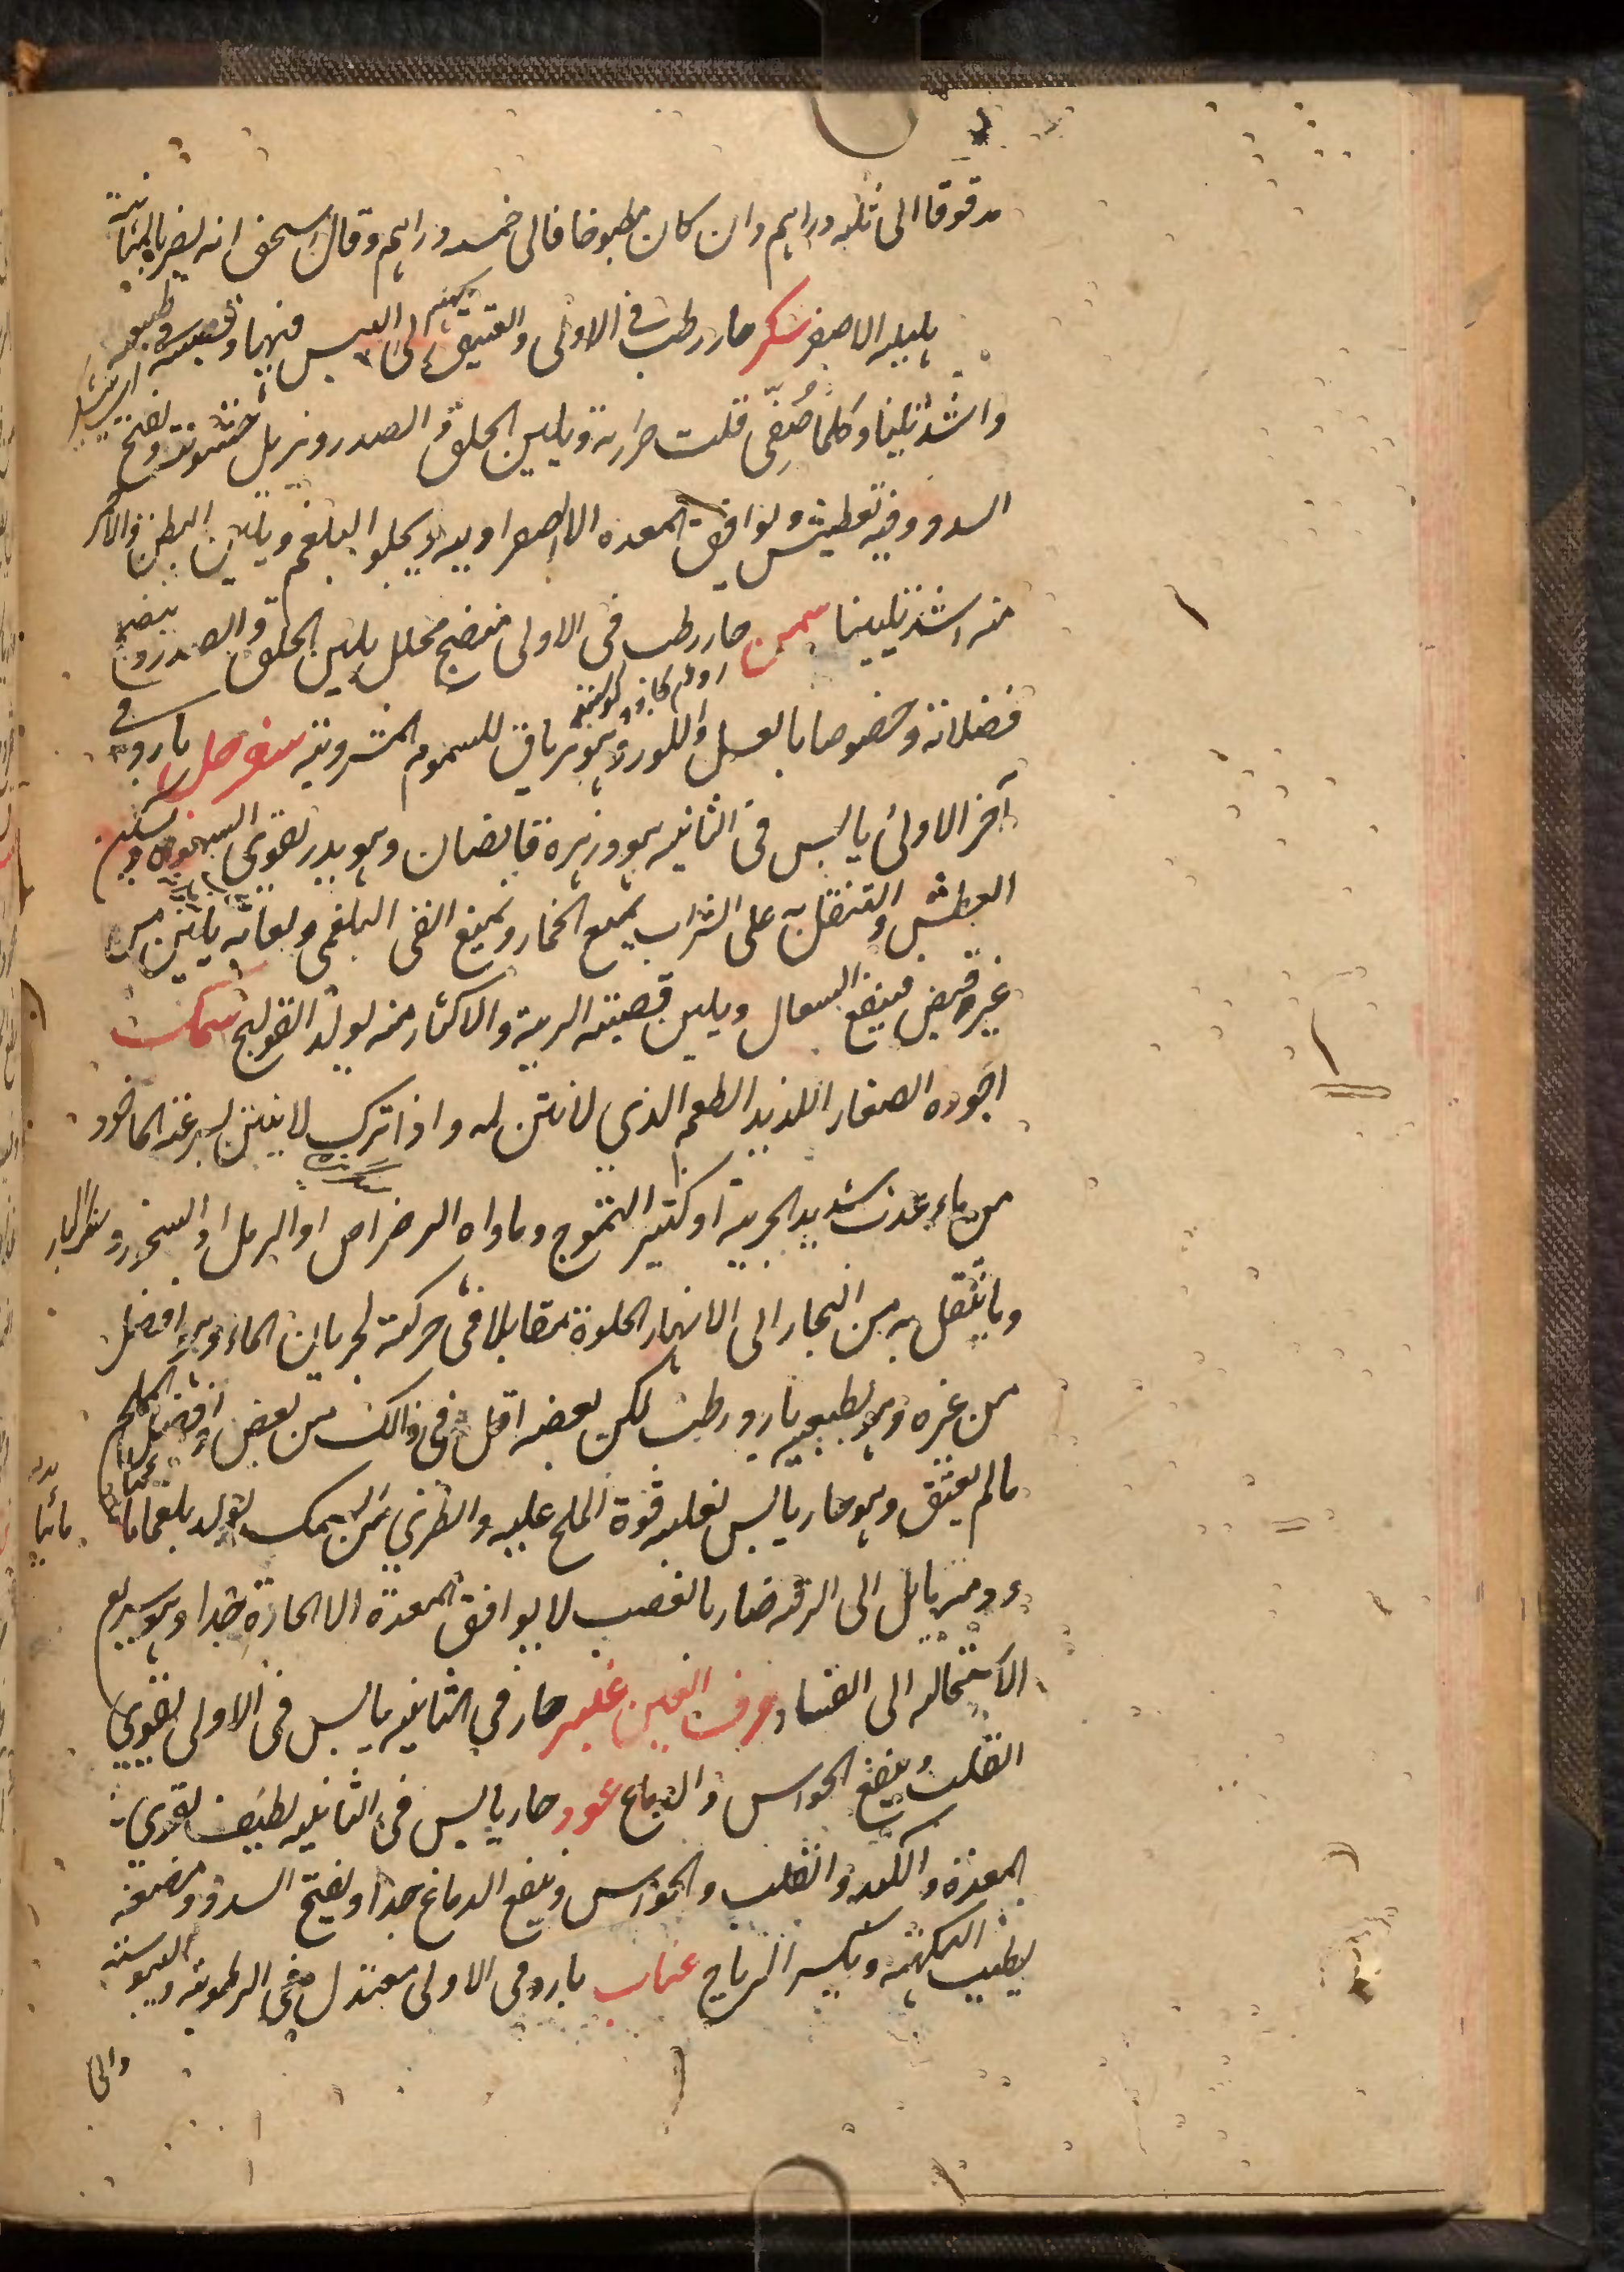 مدقوقا الى ثلثه دراهم وان كان مطبوخا فالى خمسه دراهم وقال اسحق انه يضر بالمثانية
هليله الاصفر سكر حار رطب فى الاولى والعتيق الى اليبس فيها وقصبه فى طبيعه
واشد تلينا وكلما صُفّى قلت حرارته ويلين الحلق والصدر ويزيل خشونته ويفتح
السدد وفيه تعطيش ويوافق المعده الا الصفراويه ويجلو البلغم ويلين البطن والاحمر
منه اشد تليينا سمن حار رطب فى الاولى منضج محلل يلين الحلق والصدر وينضج
فضلاته وخصوصا بالعسل واللوز وهو ترياق للسموم المشروبته سفرجل بارد فى
آخر الاولى يابس فى الثانيه هو وزهره قابضان وهو يدر ويقوى الشهوه ويسكن
العطش والتنقل به على الشراب يمنع الخمار ويمنع القى البلغمى ولعابه يلين من
غير قبض فينفع السعال ويلين قصبته الرية والاكثار منه يولد القولنج سمك
اجوده الصغار اللذيذ الطعم الذي لا نتن له واذا ترك لا ينتن بسرعة الماخوذ
من ماء عذب شديد الجرية او كثير التموج وماواه الرضراض او الرمل او الصخور
وما ينتقل به من البحار الى الانهار الحلوة مقابلا فى حركته لجريان الماء فهو افضل
من غيره وهو بطبيعه بارد رطب لكن بعضه اقل فى ذالك من بعض وافضل المملح
مالم يعتق وهو حار يابس لغلبه قوة الملح عليه والطري من السمك يولد بلغما مائيا
ودمه مايل الى الرقه ضار بالعصب لا يوافق المعدة الا الحارة جدا وهو سريع
الاستحاله الى الفساد حرف العين عنبر حار في الثانيه يابس فى الاولى يقوي
القلب وينفع الحواس والدماغ عود حار يابس فى الثانيه لطيف يقوي
المعدة والكبد والقلب والحواس وينفع الدماغ جدا ويفتح السدد ومضغه
يطيب النكهته ويكسر الرياح عناب بارد فى الاولى معتدل فى الرطوبة واليبوسته
والى